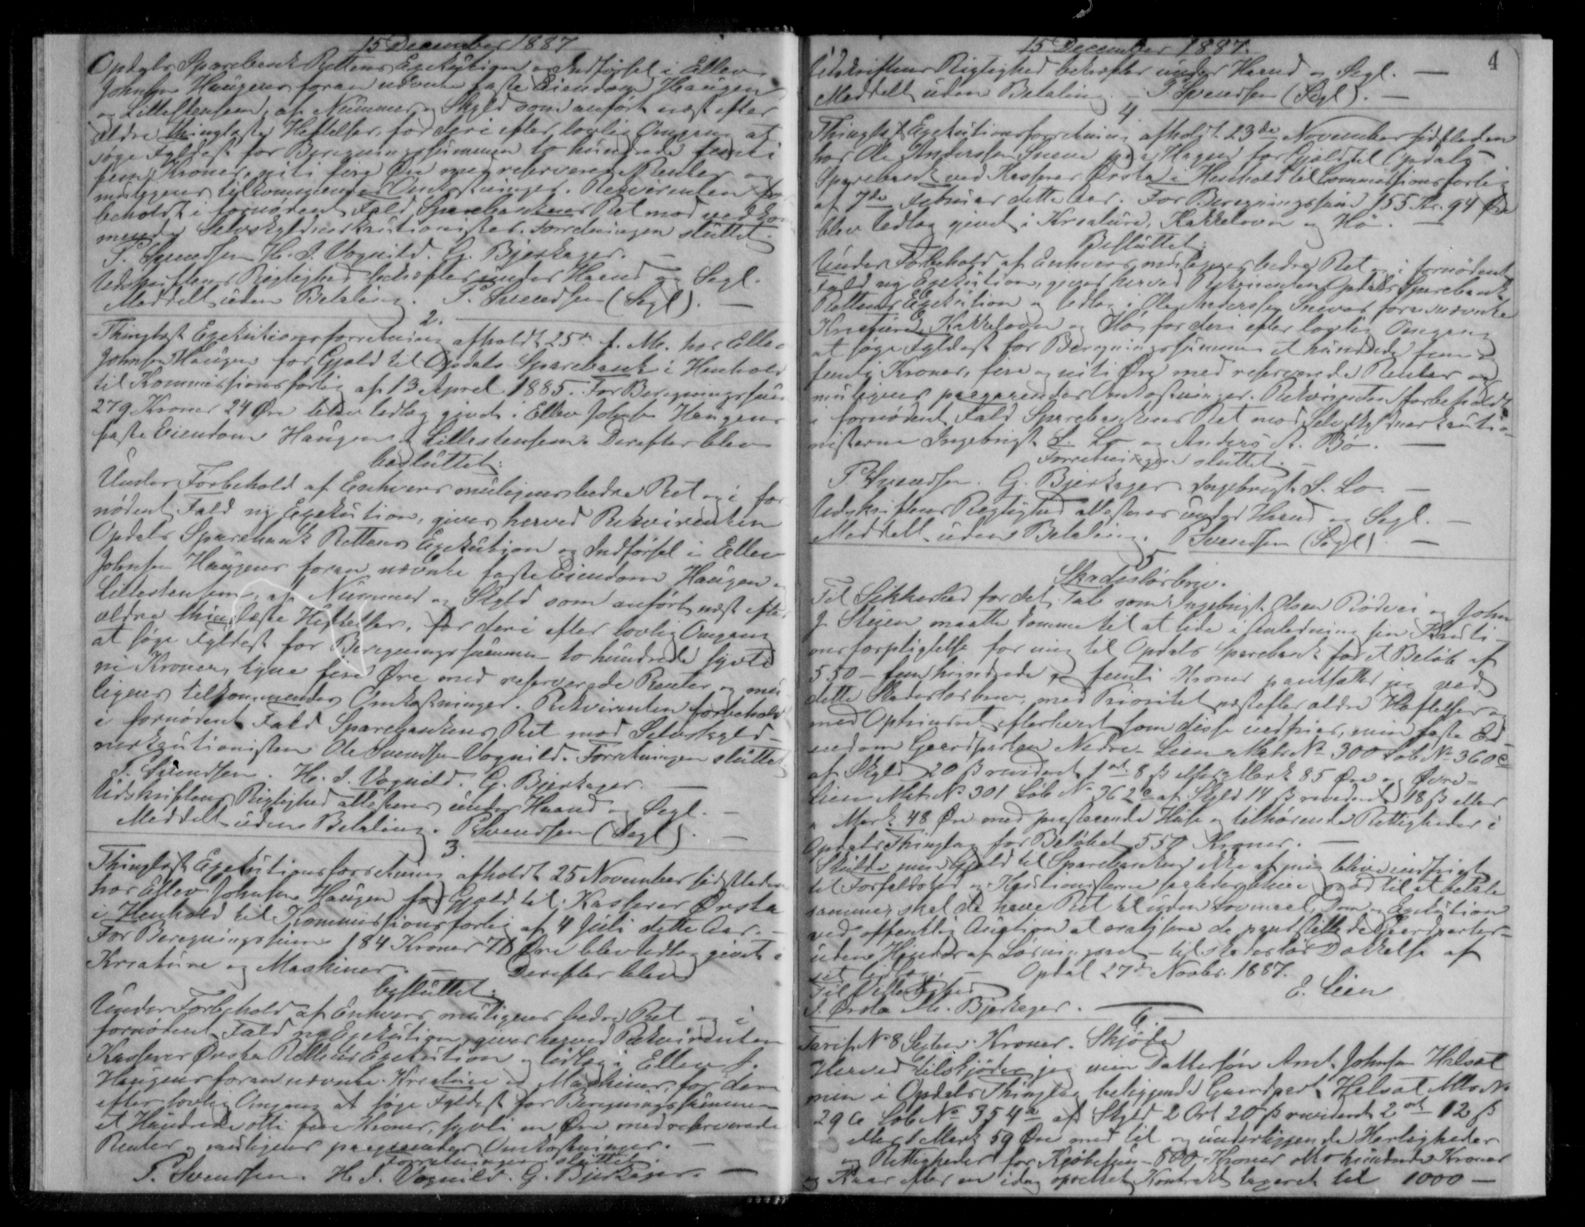 15 December 1887
Opdals Sparebank Rettens Exekution og Indførsel i Ellev
Johnsen Haugens foran nævnte faste Eiendom Haugen
og Lillestensen, af Nummer og Skyld som anført næst efter
ældre thinglæste Heftelser, for deri efter lovlig Omgang at
søge Fyldest for Beregningssummen to hundrede
fem Kroner, niti fire Øre med reserverede Renter og
muligens tilkommende Omkostninger. Rekvirenten for-
beholdt i fornødent Fald Sparebankens Ret mod vedkom-
mende Selvskyldnerkautionister. Forretningen sluttet.
P. Svendsen H. I. Vognild. G. Bjerkager. —
Udskriftens Rigtighed bekræftes under Haand og Segl.
Meddelt uden Betaling. P. Svendsen (Segl). —
2.
Thinglæst Exekutionsforretning afholdt 25de f. M. hos Ellev
Johnsen Haugen for Gjæld til Opdals Sparebank i Henhold
til Kommissionsforlig af 13 April 1885. For Beregningssum
279 Kroner 24 Øre blev Udlæg givet i Ellev Johnsen Haugens
faste Eiendom Haugen og Lillestensen. Derefter blev
besluttet:
Under Forbehold af Enhvers muligens bedre Ret og i for
nødent Fald ny Exekution, gives herved Rekvirenten
Opdals Sparebank Rettens Exekution og Indførsel i Ellev
Johnsen Haugens foran nævnte faste Eiendom Haugen og
Lillestensen, af Nummer og Skyld som anført næst efter
ældre thinglæste Heftelser, for deri efter lovlig Omgang
at søge Fyldest for Beregningssummen to hundrede sytti
ni Kroner, tyve fire Øre med reserverede Renter og mu-
ligens tilkommende Omkostninger. Rekvirenten forbeholdt
i fornødent Fald Sparebankens Ret mod Selvskyld-
nerkautionisten Ole Svendsen Vognild. Forretningen sluttet
P. Svendsen. H. I. Vognild. G. Bjerkager. —
Udskriftens Rigtighed attesteres under Haand og Segl. —
Meddelt uden Betaling. P. Svendsen (Segl). —
3.
Thinglæst Exekutionsforretning afholdt 25 November sidstleden
hos Ellev Johnsen Haugen for Gjæld til Kasserer Ørsta
i Henhold til Kommissionsforlig af 4 Juli dette Aar. —
For Beregningssum 184 Kroner 71 Øre blev Udlæg givet i
Kreature og Maskiner. — Derefter blev
besluttet:
Under Forbehold af Enhvers muligens bedre Ret og i
fornødent Fald ny Exekution, gives herved Rekvirenten
Kasserer Ørsta Rettens Exekution og Udlæg i Ellev J.
Haugens foran nævnte Kreature og Maskiner, for deri
efter lovlig Omgang at søge Fyldest for Beregningssummen
et Hundrede otti fire Kroner, sytti en Øre med reserverede
Renter og muligens paagaaende Omkostninger. —
Forretningen sluttet.
P. Svendsen. H. I. Vognild. G. Bjerkager. —
15 December 1887.
4
Udskriftens Rigtighed bekræftes under Haand og Segl. —
Meddelt uden Betaling. — P. Svendsen (Segl). —
4
Thinglæst Exekutionsforretning afholdt 23de November sidstleden
hos Ole Anderssen Sneve for Gjæld til Opdals
Sparebank ved Kasserer Ørsta i Henhold til Kommissionsforlig
af 7de Februar dette Aar. For Beregningssum 155 Kr. 94 Øre
blev Udlæg givet i Kreature, Kakkelovn og Hø. —
Besluttet:
Under Forbehold af Enhvers muligens bedre Ret og i fornødent
Fald ny Exekution, gives herved Rekvirenten Opdals Sparebank
Rettens Exekution og Udlæg i Ole Anderssen Sneves foran nævnte
Kreature, Kakkelovn og Hø, for deri efter lovlig Omgang
at søge Fyldest for Beregningssummen et hundrede fem og
femti Kroner, fire og niti Øre med reserverede Renter og
muligens paagaaende Omkostninger. Rekvirenten forbeholdt
i fornødent Fald Sparebankens Ret mod Selvskyldnerkautio-
nisterne Ingebrigt S. Lo og Anders A. Bø. —
Forretningen sluttet. —
P. Svendsen. G. Bjerkager. Ingebrigt S. Lo. —
Udskriftens Rigtighed attesteres under Haand og Segl. —
Meddelt uden Betaling. P. Svendsen (Segl). —
5
Skadesløsbrev.
Til Sikkerhed for det Tab som Ingebrigt Olsen Rødvei og John
J. Steien maatte komme til at lide i Anledning sin Kauti-
onsforpligtelse for mig til Opdals Sparebank for et Beløb af
550 — fem hundrede og femti Kroner pantsætter jeg ved
dette Skadesløsbrev, med Prioritet næstefter ældre Heftelser og
med Oprindret efterhvert som disse indfries, min faste Ei-
endom Gaardparten Nedre-Lien Matr. No 300 Løb No 360c
af Skyld 20 ß revideret 1 ort 8 ß eller Mark 85 Øre og Øvre-
Lien Matr. No 301 Løb No 362c af Skyld 14 ß revideret 18 ß eller
Mark 48 Øre med paastaaende Huse og tilhørende Rettigheder i
Opdals Thinglag for Beløbet 550 Kroner. —
Skulde min Gjæld til Sparebanken ikke af mig blive indfriet
til Forfaldstid og Kautionisterne saaledes blive nød til at betale
samme, skal de have Ret til uden Lovmaal, Dom og Exekution
ved offentlig Auktion at realisere de pantsatte Gaardparter
uden Hensyn af Løsningsret — til skadesløs Dækkelse af
sit Udlæg. — Opdal 27de Novbr. 1887.
Til Vitterlighed E. Lien
J. Ørsta M. Bjerkager.
6
Tarif No 8 Sexten Kroner. Skjøde
Herved tilskjøder jeg min Dattersøn Arnt Johnsen Halset
min i Opdals Thinglag beliggende Gaardpart Halset Mtr. No
296 Løb No 354a af Skyld 2 Ort 20 ß revideret 2 ort 12 ß
eller 1 Mark 59 Øre med til og underliggende Herligheder
og Rettigheder for Kjøbesum 800 Kroner otte hundrede Kroner
og Kaar efter en idag oprettet Kontrakt taxeret til 1000 —